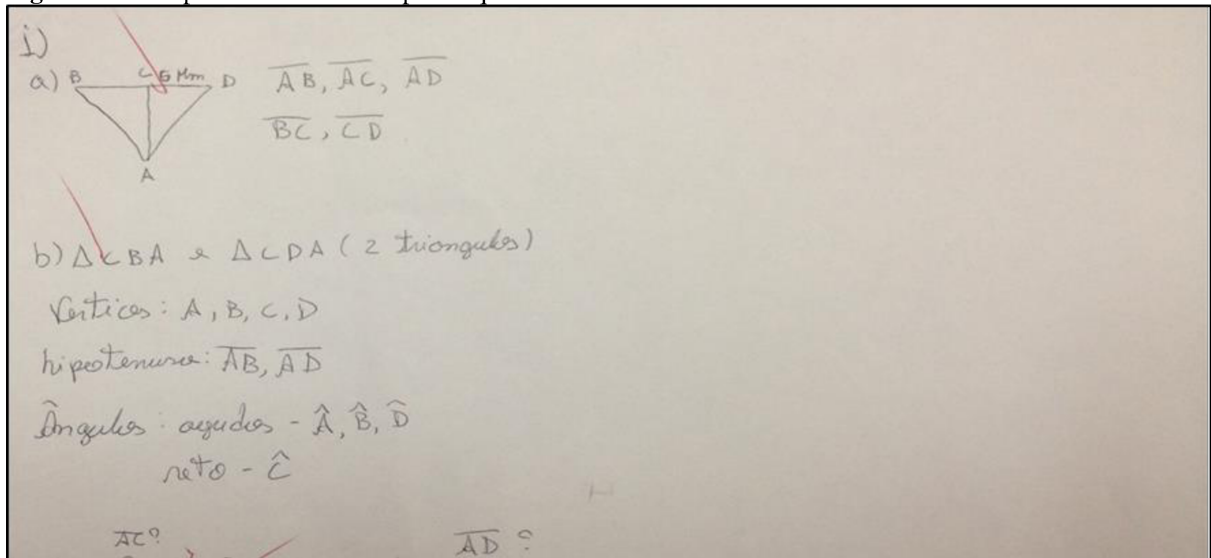 i)
a) B C 5 Mm D A
AB, AC, AD
BC, CD
b) Δ CBA e Δ CDA (2 triangulos)
Vertices: A, B, C, D
hipotenusa: AB, AD
Ângulos: agudos - Â, B̂, D̂
reto - Ĉ
AC?
AD?